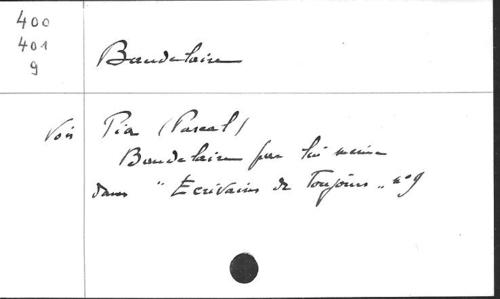 400
401
9
Baudelaire
Voir Pia (Pascal)
Baudelaire par lui même
dans "Ecrivains de Toujours" n° 9